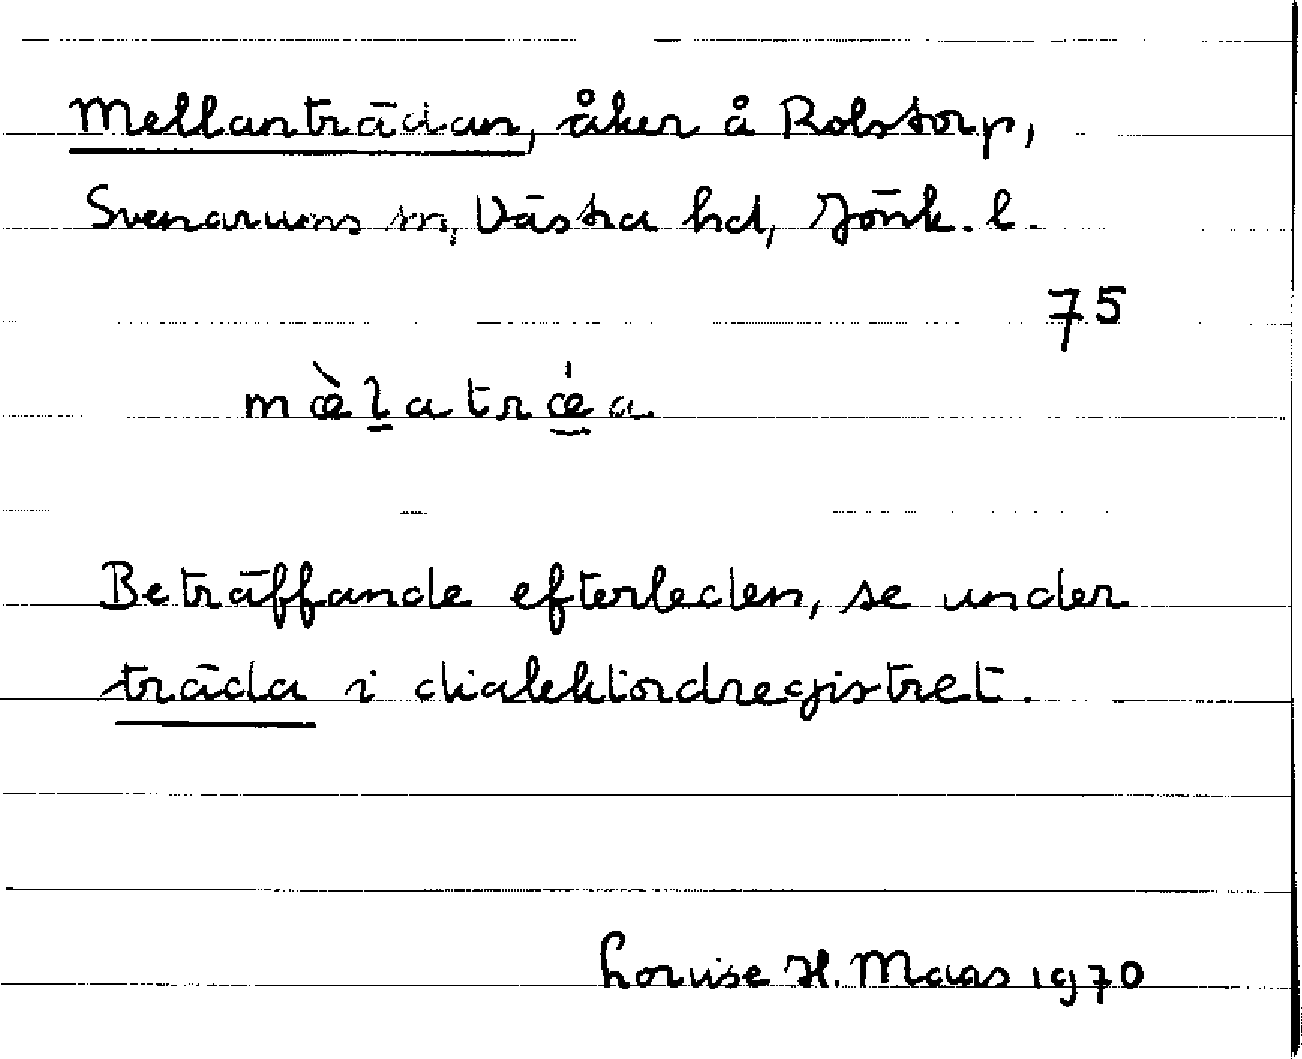 Mellanträdan, åker å Rolstorp,
Svenarums sn, Västra hd, Jönk. l.
75
mæ̀l̲atrǽ̲a
Beträffande efterleden, se under
träda i dialektordregistret.
Louise H. Maas 1970